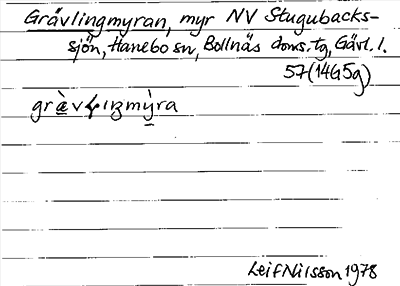 Grävlingmyran, myr NV Stugubacks-
sjön, Hanebo sn, Bollnäs doms. tg, Gävl. l.
57 (14G5g)
Leif Nilsson 1978